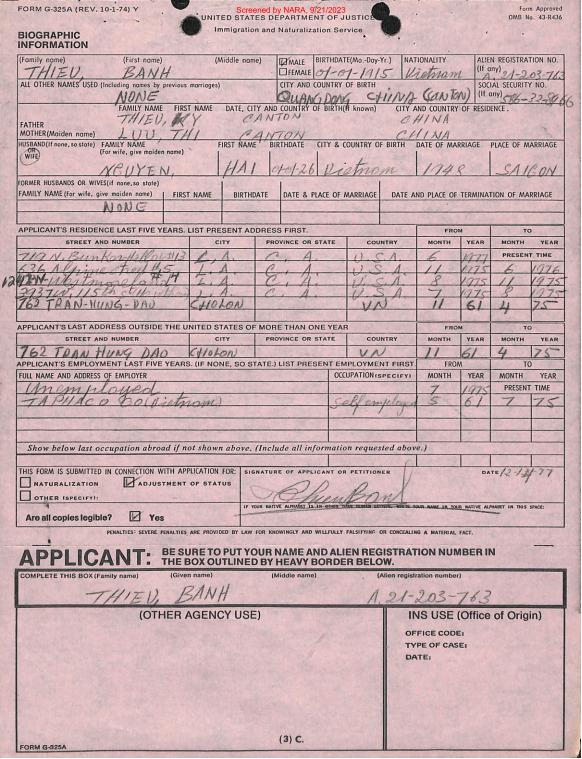 FORM G-325A (REV. 10-1-74) Y
Screened by NARA, 9/21/2023
UNITED STATES DEPARTMENT OF JUSTICE
Immigration and Naturalization Service
Form Approved
OMB No. 43-R436
BIOGRAPHIC
INFORMATION
(Family name) (First name) (Middle name) MALE FEMALE BIRTHDATE(Mo.-Day-Yr.) NATIONALITY ALIEN REGISTRATION NO. (If any)
THIEU, BANH 01-01-1915 Vietnam A. 21-203-763
ALL OTHER NAMES USED (Including names by previous marriages) CITY AND COUNTRY OF BIRTH SOCIAL SECURITY NO. (If any)
NONE QUANGDONG CHINA (CANTON)
FAMILY NAME FIRST NAME DATE, CITY AND COUNTRY OF BIRTH(If known) CITY AND COUNTRY OF RESIDENCE.
FATHER THIEU, KY CANTON CHINA
MOTHER(Maiden name) LUU, THI CANTON CHINA
HUSBAND(If none, so state) OR WIFE FAMILY NAME (For wife, give maiden name) FIRST NAME BIRTHDATE CITY & COUNTRY OF BIRTH DATE OF MARRIAGE PLACE OF MARRIAGE
NGUYEN, HAI 01-01-26 Vietnam 1948 SAIGON
FORMER HUSBANDS OR WIVES(if none, so state)
FAMILY NAME (For wife, give maiden name) FIRST NAME BIRTHDATE DATE & PLACE OF MARRIAGE DATE AND PLACE OF TERMINATION OF MARRIAGE
NONE
APPLICANT'S RESIDENCE LAST FIVE YEARS. LIST PRESENT ADDRESS FIRST. FROM TO
STREET AND NUMBER CITY PROVINCE OR STATE COUNTRY MONTH YEAR MONTH YEAR
L.A. C.A. U.S.A. 6 PRESENT TIME
636 Alpine L.A. C.A. U.S.A. 11 1975 6 1976
L.A. C.A. U.S.A. 8 1975 11 1975
L.A. C.A. U.S.A. 7 1975 8
762 TRAN-HUNG-DAO CHOLON VN 11 61 4 75
APPLICANT'S LAST ADDRESS OUTSIDE THE UNITED STATES OF MORE THAN ONE YEAR FROM TO
STREET AND NUMBER CITY PROVINCE OR STATE COUNTRY MONTH YEAR MONTH YEAR
762 TRAN HUNG DAO CHOLON VN 11 61 4 75
APPLICANT'S EMPLOYMENT LAST FIVE YEARS. (IF NONE, SO STATE.) LIST PRESENT EMPLOYMENT FIRST. FROM TO
FULL NAME AND ADDRESS OF EMPLOYER OCCUPATION (SPECIFY) MONTH YEAR MONTH YEAR
Unemployed 7 1975 PRESENT TIME
TAPHACO CO (Vietnam) Self employed 5 61 7 75
Show below last occupation abroad if not shown above. (Include all information requested above.)
THIS FORM IS SUBMITTED IN CONNECTION WITH APPLICATION FOR: SIGNATURE OF APPLICANT OR PETITIONER DATE
NATURALIZATION ADJUSTMENT OF STATUS
OTHER (SPECIFY):
IF YOUR NATIVE ALPHABET IS IN OTHER THAN ROMAN LETTERS, WRITE YOUR NAME IN YOUR NATIVE ALPHABET IN THIS SPACE:
Are all copies legible? Yes
PENALTIES: SEVERE PENALTIES ARE PROVIDED BY LAW FOR KNOWINGLY AND WILLFULLY FALSIFYING OR CONCEALING A MATERIAL FACT.
APPLICANT: BE SURE TO PUT YOUR NAME AND ALIEN REGISTRATION NUMBER IN
THE BOX OUTLINED BY HEAVY BORDER BELOW.
COMPLETE THIS BOX (Family name) (Given name) (Middle name) (Alien registration number)
THIEU, BANH A. 21-203-763
(OTHER AGENCY USE) INS USE (Office of Origin)
OFFICE CODE:
TYPE OF CASE:
DATE:
(3) C.
FORM G-325A